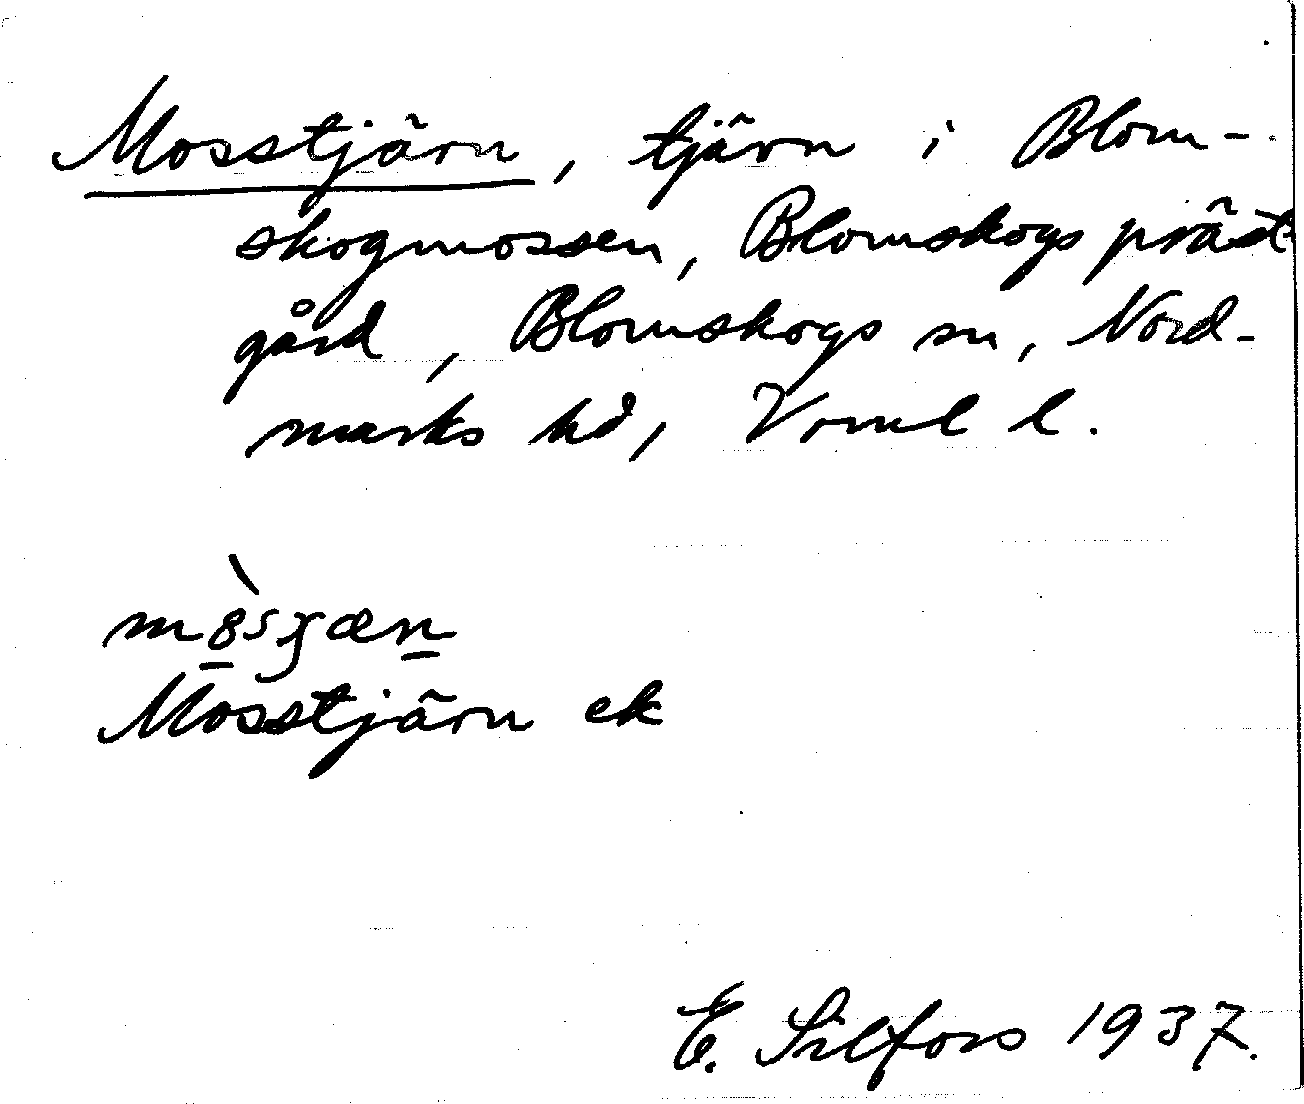 Mosstjärn, tjärn i Blom-
skogmossen, Blomskogs präst-
gård, Blomskogs sn, Nord-
marks hd, Vrml l.
Mosstjärn ek
E. Silfors 1937.